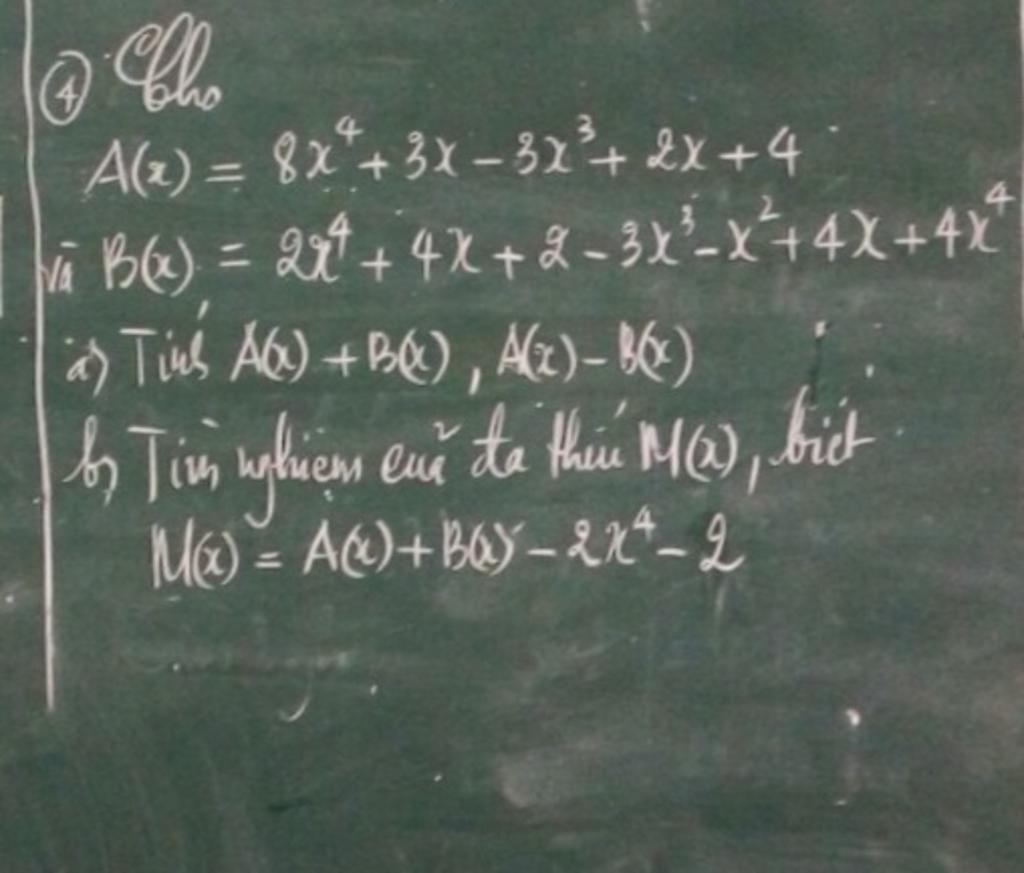 ④ Cho
A(x) = 8x⁴ + 3x - 3x³ + 2x + 4
và B(x) = 2x⁴ + 4x + 2 - 3x³ - x² + 4x + 4x⁴
a) Tính A(x) + B(x), A(x) - B(x)
b) Tìm nghiệm của đa thức M(x), biết
M(x) = A(x) + B(x) - 2x⁴ - 2